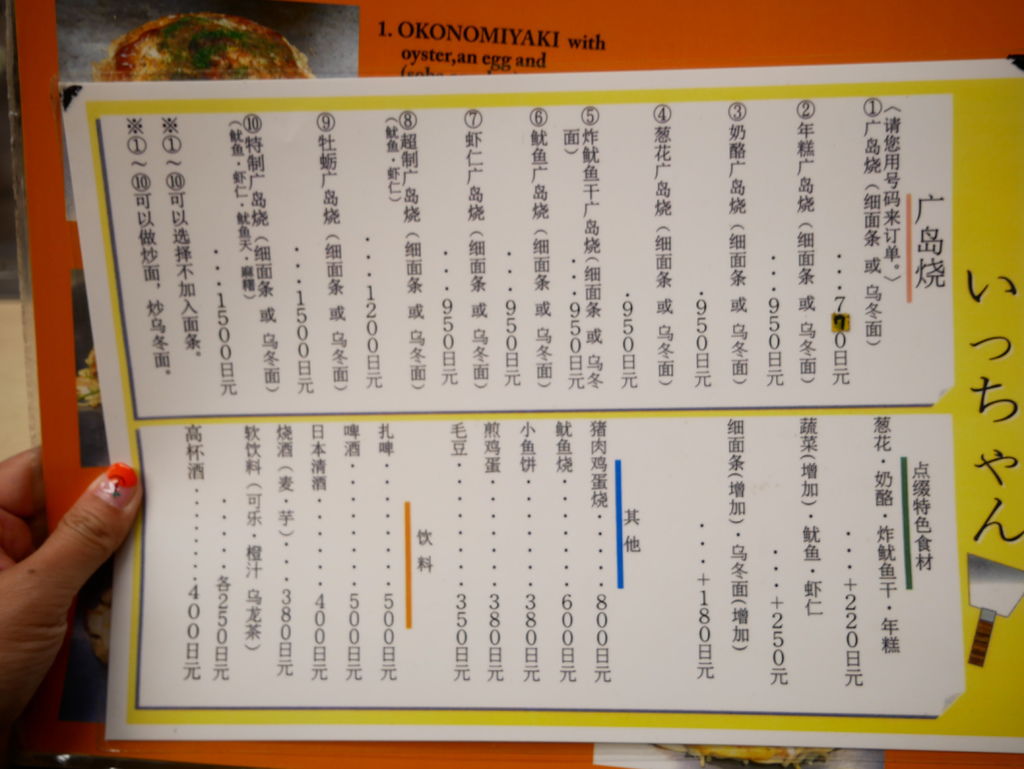 1. OKONOMIYAKI with
oyster,an egg and
いっちゃん
广岛烧
(请您用号码来订单。)
①广岛烧(细面条 或 乌冬面)
・・・770日元
②年糕广岛烧(细面条 或 乌冬面)
・・・950日元
③奶酪广岛烧(细面条 或 乌冬面)
・950日元
④葱花广岛烧(细面条 或 乌冬面)
・950日元
⑤炸鱿鱼干广岛烧(细面条 或 乌冬
面)
・・・950日元
⑥鱿鱼广岛烧(细面条 或 乌冬面)
・・・950日元
⑦虾仁广岛烧(细面条 或 乌冬面)
・・・950日元
⑧超制广岛烧(细面条 或 乌冬面)
(鱿鱼・虾仁)
・・・1200日元
⑨牡蛎广岛烧(细面条 或 乌冬面)
・・・1500日元
⑩特制广岛烧(细面条 或 乌冬面)
(鱿鱼・虾仁・鱿鱼天・麻糬)
・・・1500日元
※①~⑩可以选择不加入面条。
※①~⑩可以做炒面,炒乌冬面。
点缀特色食材
葱花・奶酪・炸鱿鱼干・年糕
・・・+220日元
蔬菜(增加)・鱿鱼・虾仁
・・・+250日元
细面条(增加)・乌冬面(增加)
・・・+180日元
其他
猪肉鸡蛋烧・・・・800日元
鱿鱼烧・・・・・・600日元
小鱼饼・・・・・・380日元
煎鸡蛋・・・・・・380日元
毛豆・・・・・・・350日元
饮料
扎啤・・・・・・・500日元
啤酒・・・・・・・500日元
日本清酒・・・・・400日元
烧酒(麦,芋)・・・380日元
软饮料(可乐・橙汁 乌龙茶)
・・・・各250日元
高杯酒・・・・・・400日元